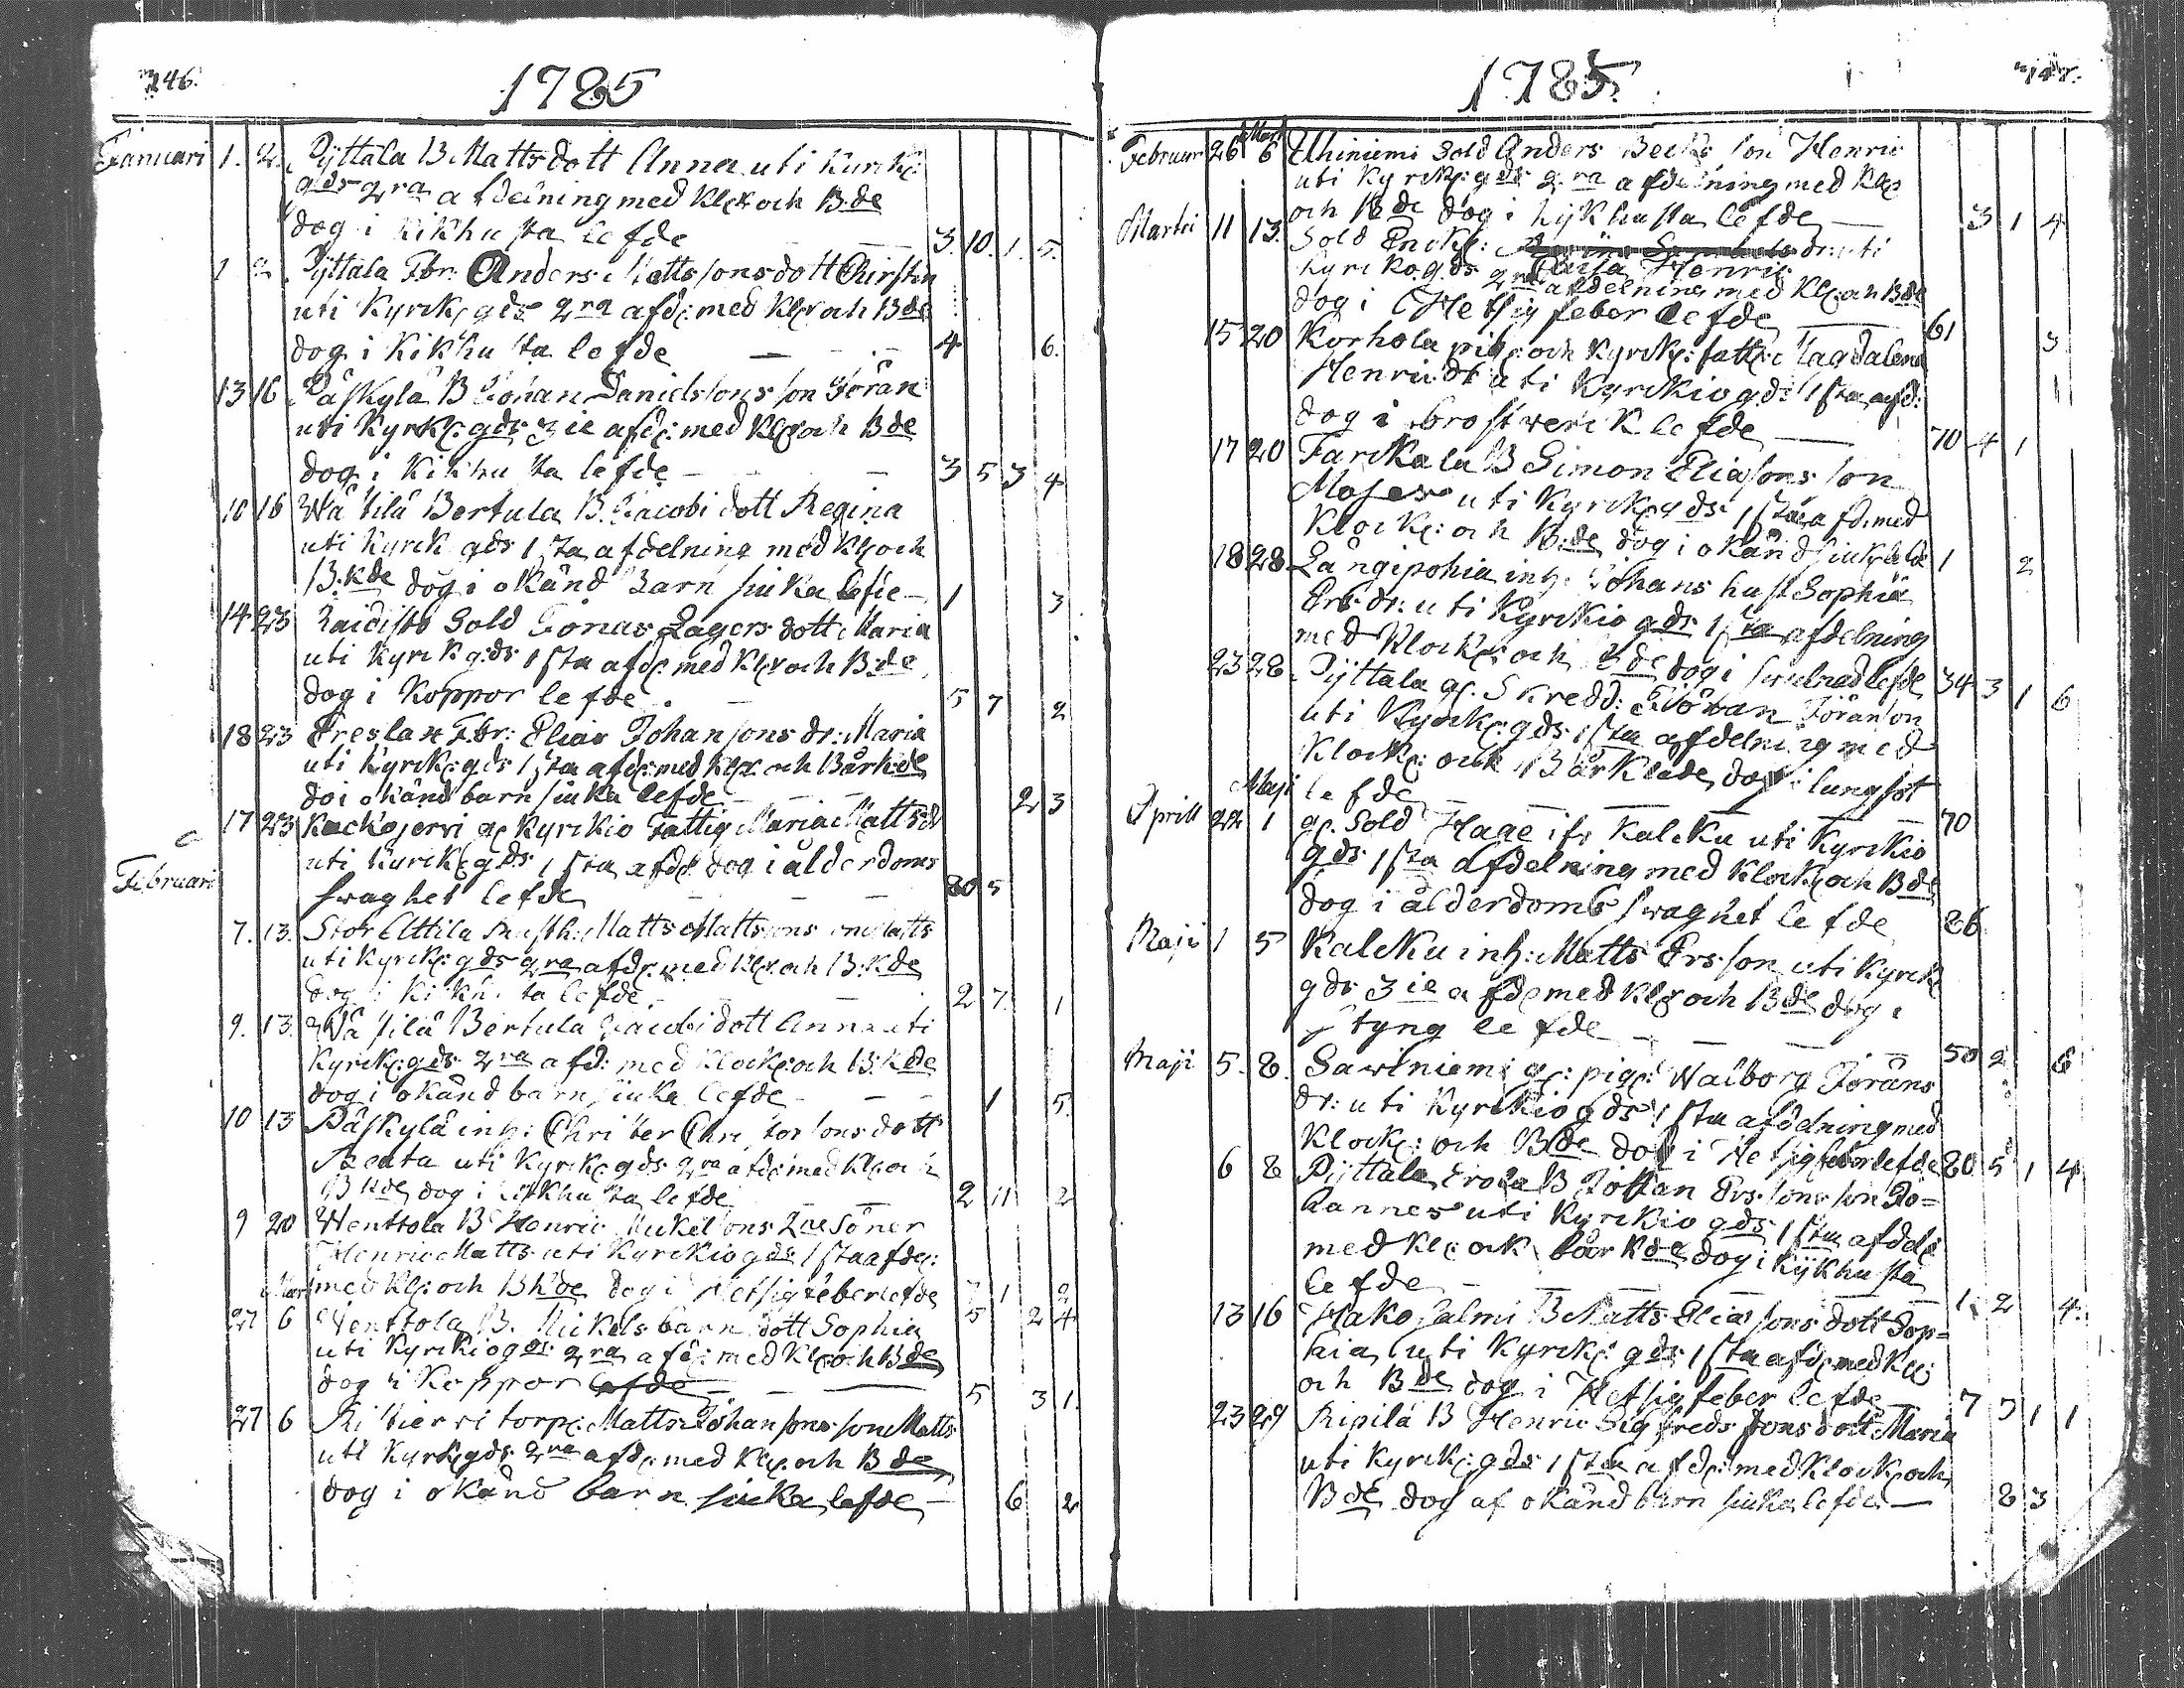 146.
1785
Januari 1. 2. Pyttala B Matts dott Anna uti Kyrk:
gds 2ra afdelning med Klck och B:de
dog i Kikhusta lefde 3. 10. 1. 5.
1 2 Pyttala Fbr: Anders Mattssons dott Chirstin
uti Kyrck: gds 2ra afd: med Klck och Bde
dog i Kikhusta lefde 4 6.
13 16 Päskylä B Johan Danielssons son Jöran
uti Kyrk: gds 3ie afd: med Klck och Bde
dog i Kikhusta lefde 3 5 3 4
10 16 Wätilä Bertula B. Jacobi dott Regina
uti Kyrck gds 1sta afdelning med Klck och
B.Kde dog i okänd Barn siuka lefde 1 3
14 23 Sold Jonas Lagers dott Maria
uti Kyrck g:ds 1sta afd: med Klck och B:de
dog i Koppor lefde 5 7 2
18 23 Fbr: Elias Johanssons dr: Maria
uti Kyrck: gds 1sta afd: med Klck och Bårk:de
do i okänd barn siuka lefde 2 3
17 23 Kackojervi gl Kyrckio Fattig Maria Mattsdr
uti Kyrck gds 1sta afd: dog i ålderdoms
Februari swaghet lefde 80 5
7. 13. Stor Attila Rusth: Matts Mattssons son Matts
uti Kyrck: gds 2ra afd: med Klck och B:Kde
dog i Kikhusta lefde 2 7. 1
9. 13. Wätilä Bertula Jacobi dott Anna uti
Kyrck: gds 2ra afd: med Klock: och B:Kde
dog i okänd barn siuka lefde 1 5.
10 13 Päskylä inh: Christer Christerssons dott
Beata uti Kyrck gds 2ra afd: med Kl: och
B Kde dog i Kikhusta lefde 2 11 2
9 20 Wenttola B Henric Mickelssons 2ne Söner
Henric Matts uti Kyrckio gds 1sta afd:
Mart med Kl: och B Kde dog i Hetsig feber lefde 7 1 2
27 6 Wenttola B. Mickels barn dott Sophia 5 2 4
uti Kyrckio gds 2ra afd: med Kl: och Bde
dog i Koppor lefde 5 3 1.
27 6 torp: Matts Johanssons son Matts
uti Kyrk gds 2ra afd: med Kl: och Bde
dog i okänd barn siuka lefde 6 2
1785.
Mart
Februar 26 6 Uhiniemi Sold Anders Becks son Henric
uti Kyrck: gds 2ra afdelning med Klck
och Bde dog i Kykhusta lefde 3 1 4
Martii 11 13. Sold Enck: dr: uti
Caisa Henric
Kyrcko gds 2ra afdelning med Kl: och Bde
dog i Hetsig feber lefde 61 3
15 20 Korhola pig: och Kyrck: fatt: Magdalena
Henricdr uti Kyrckio gds 1sta afd:
dog i brostwerck lefde 70 4 1
17 20 Farckala B Simon Eliassons son
Moses uti Kyrck gds 1sta afd: med
Klock: och B:de dog i okänd siuk: lefde 1 2
18 28 Långipohia inh: Johans hust Sophia
Ers dr: uti Kyrckio gds 1sta afdelning
med Klock: och Bde dog i lefde 34 3 1 6
23 28 Pyttala gl. Skredd: Johan Jöransson
uti Kyrck: gds 1sta afdelning med
Klock: och Bårklade, dog i lungsot
Maji lefde 70
Aprill 22 1 gl. Sold Hage ifr Kalcku uti Kyrckio
gds 1sta afdelning med Klock och Bde
dog i ålderdoms swaghet lefde 86
Maji 1 5 Kalcku inh: Matts Ersson uti Kyrck
gds 3ie afd: med Klck och Bde dog i
styng lefde 50 2 6
Maji 5. 8. Sawlniemi gl: pig: Walborg Jörans
dr: uti Kyrckio gds 1sta afdelning med
Klock: och Bde dog i Hetsig feber lefde 80 5 1 4
6 8 Pyttala B Johan Ers sons son Jo=
hannes uti Kyrckio gds 1sta afdel
med Kl: ock bår Kde dog i Kykhusta
lefde 1 2 4.
13 16 Hakosalmi B Matts Eliassons dott Sop=
hia uti Kyrck: gds 1sta afd: med Kl:
och Bde dog i Hetsig feber lefde 7 3 1 1
23 29 Ripilä B Henric Sigfreds sons dott Maria
uti Kyrck: gds 1sta afd: med Klock och
Bde dog af okänd barn siuka lefde 8 3